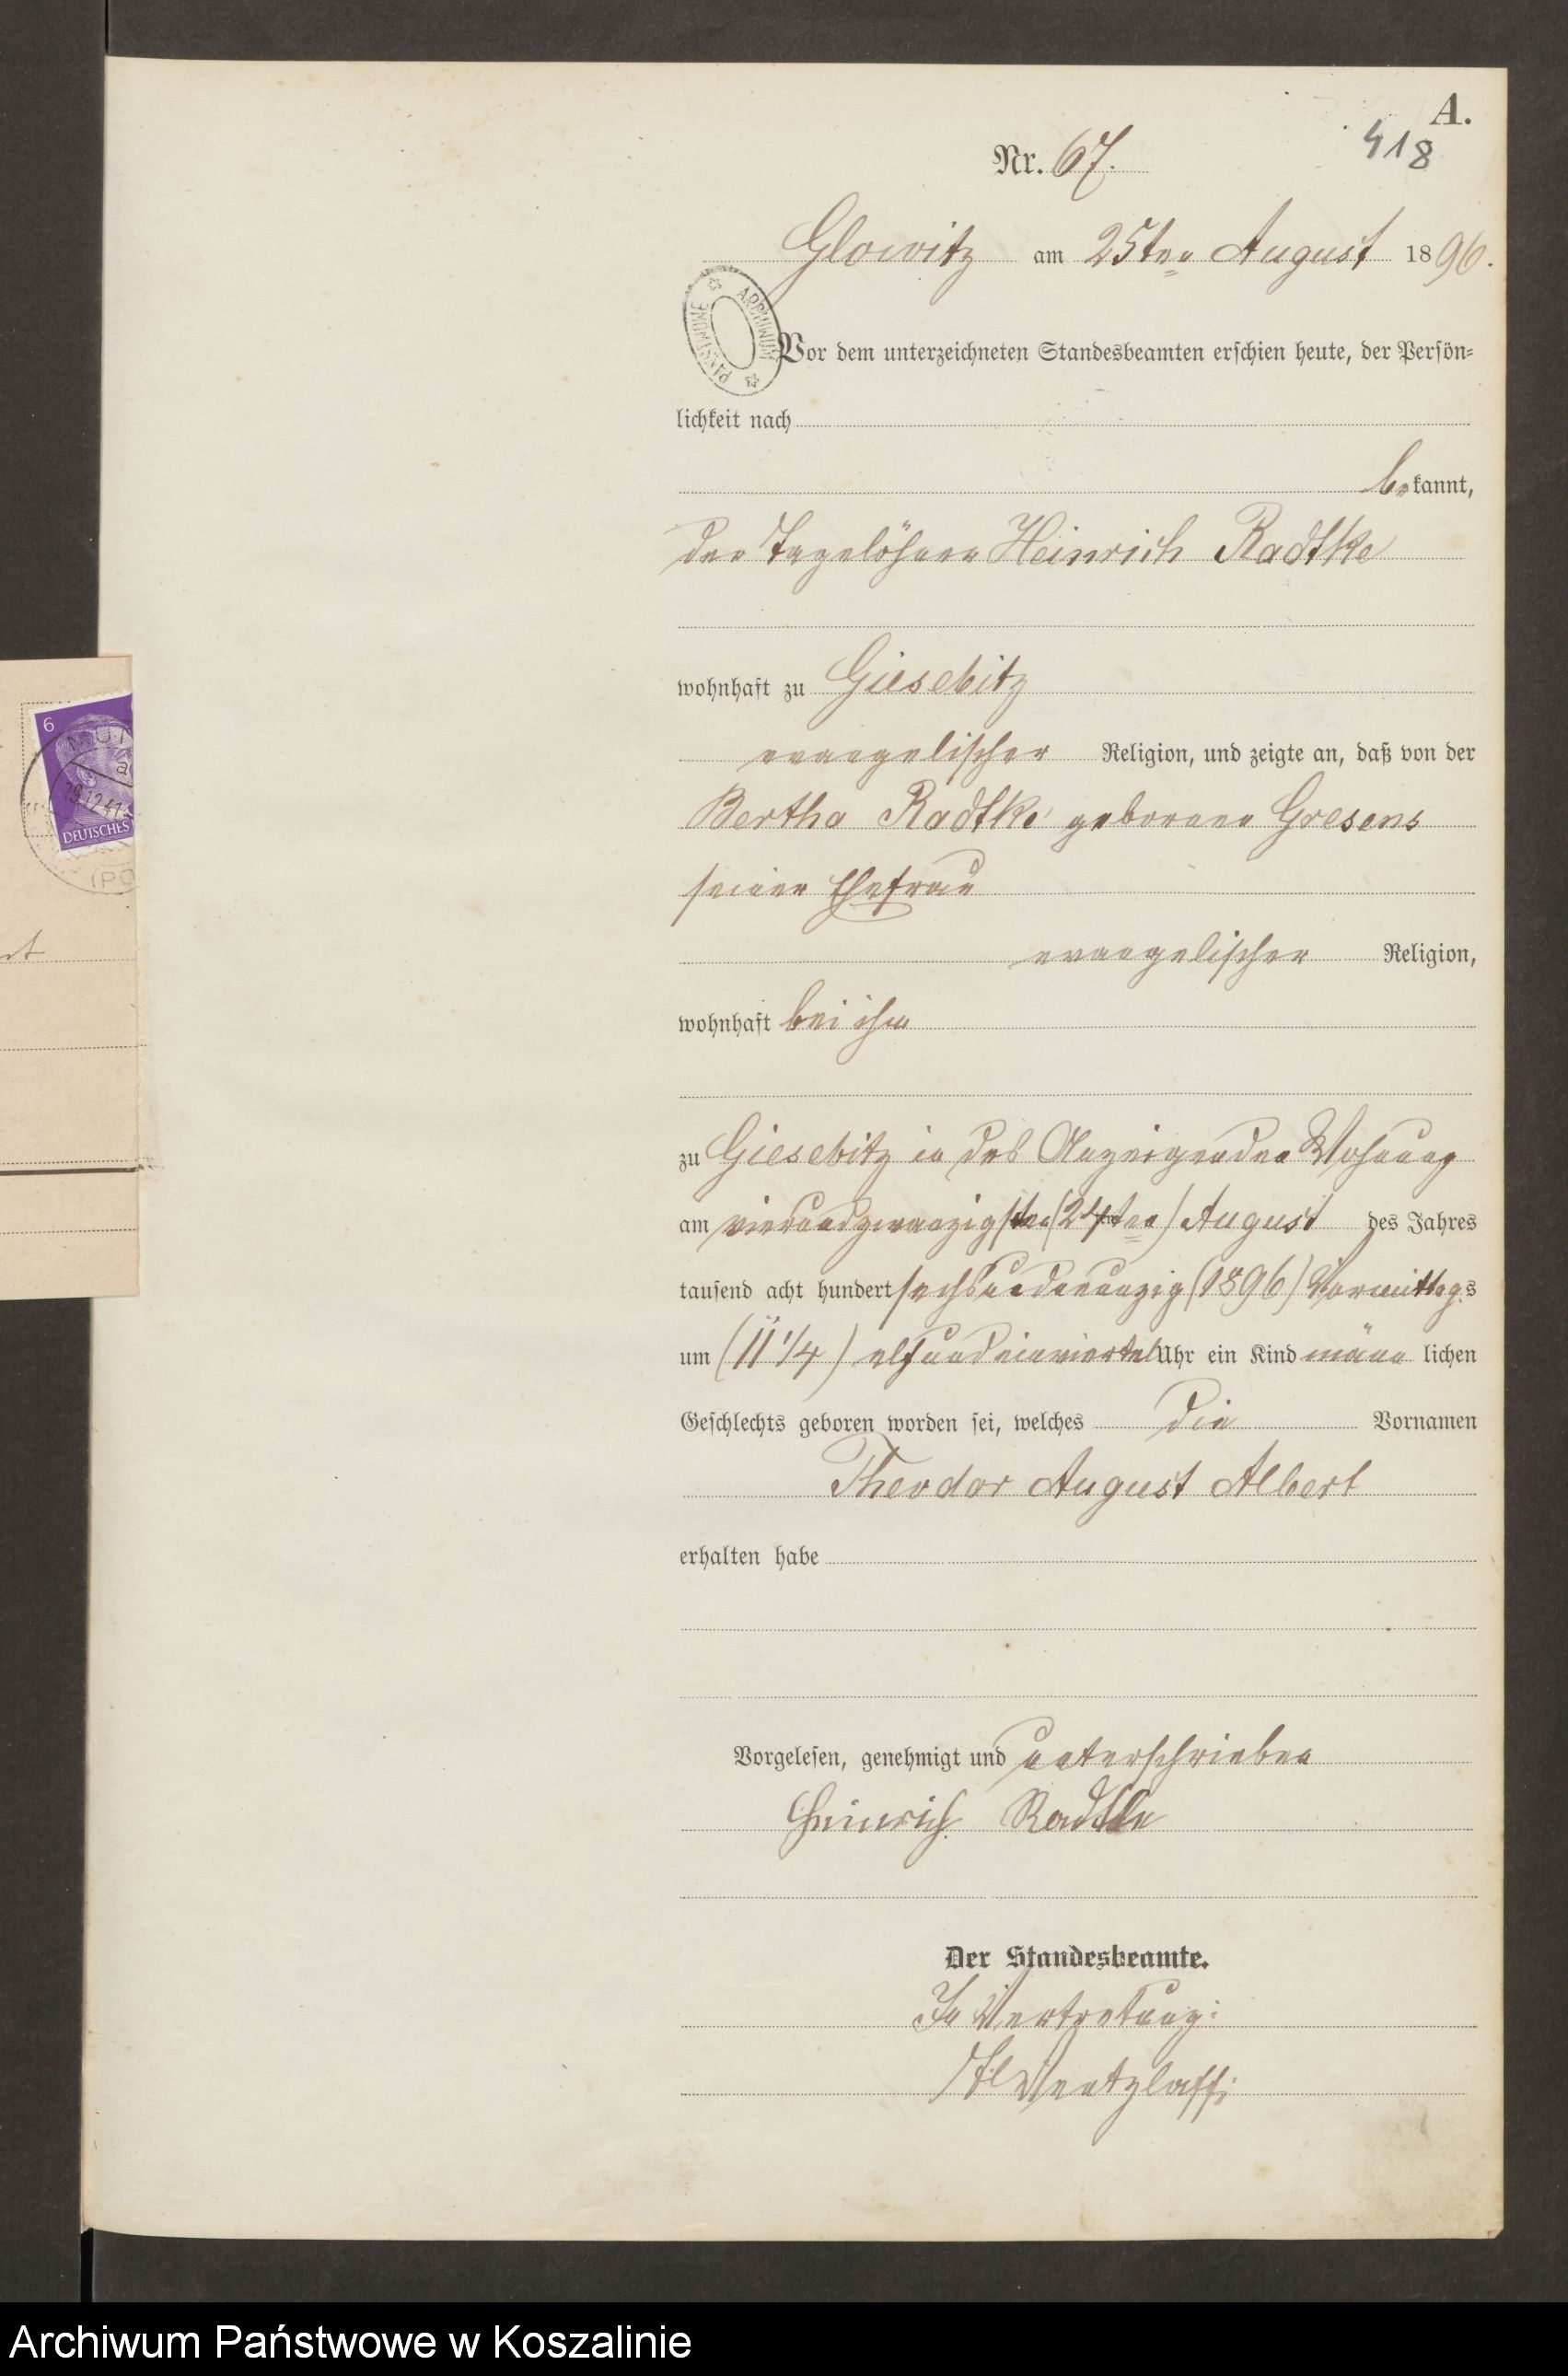 A.
418
Nr. 67.
Glowitz am 25ten August 1896.
ARCHIWUM PAŃSTWOWE
Vor dem unterzeichneten Standesbeamten erschien heute, der Persön-
lichkeit nach
bekannt,
der Tagelöhner Heinrich Radtke
wohnhaft zu Giesebitz
evangelischer Religion, und zeigte an, daß von der
Bertha Radtke geborene Gresens
seiner Ehefrau
evangelischer Religion,
wohnhaft bei ihm
zu Giesebitz in des Anzeigenden Wohnung
am vierundzwanzigsten (24ten) August des Jahres
tausend acht hundert sechsundneunzig (1896) Vormittags
um (11 1/4) elfundeinviertel Uhr ein Kind männlichen
Geschlechts geboren worden sei, welches die Vornamen
Theodor August Albert
erhalten habe
Vorgelesen, genehmigt und unterschrieben
Heinrich Radtke
Der Standesbeamte.
In Vertretung:
Wentzlaff
6
19.12.41
DEUTSCHES
Archiwum Państwowe w Koszalinie